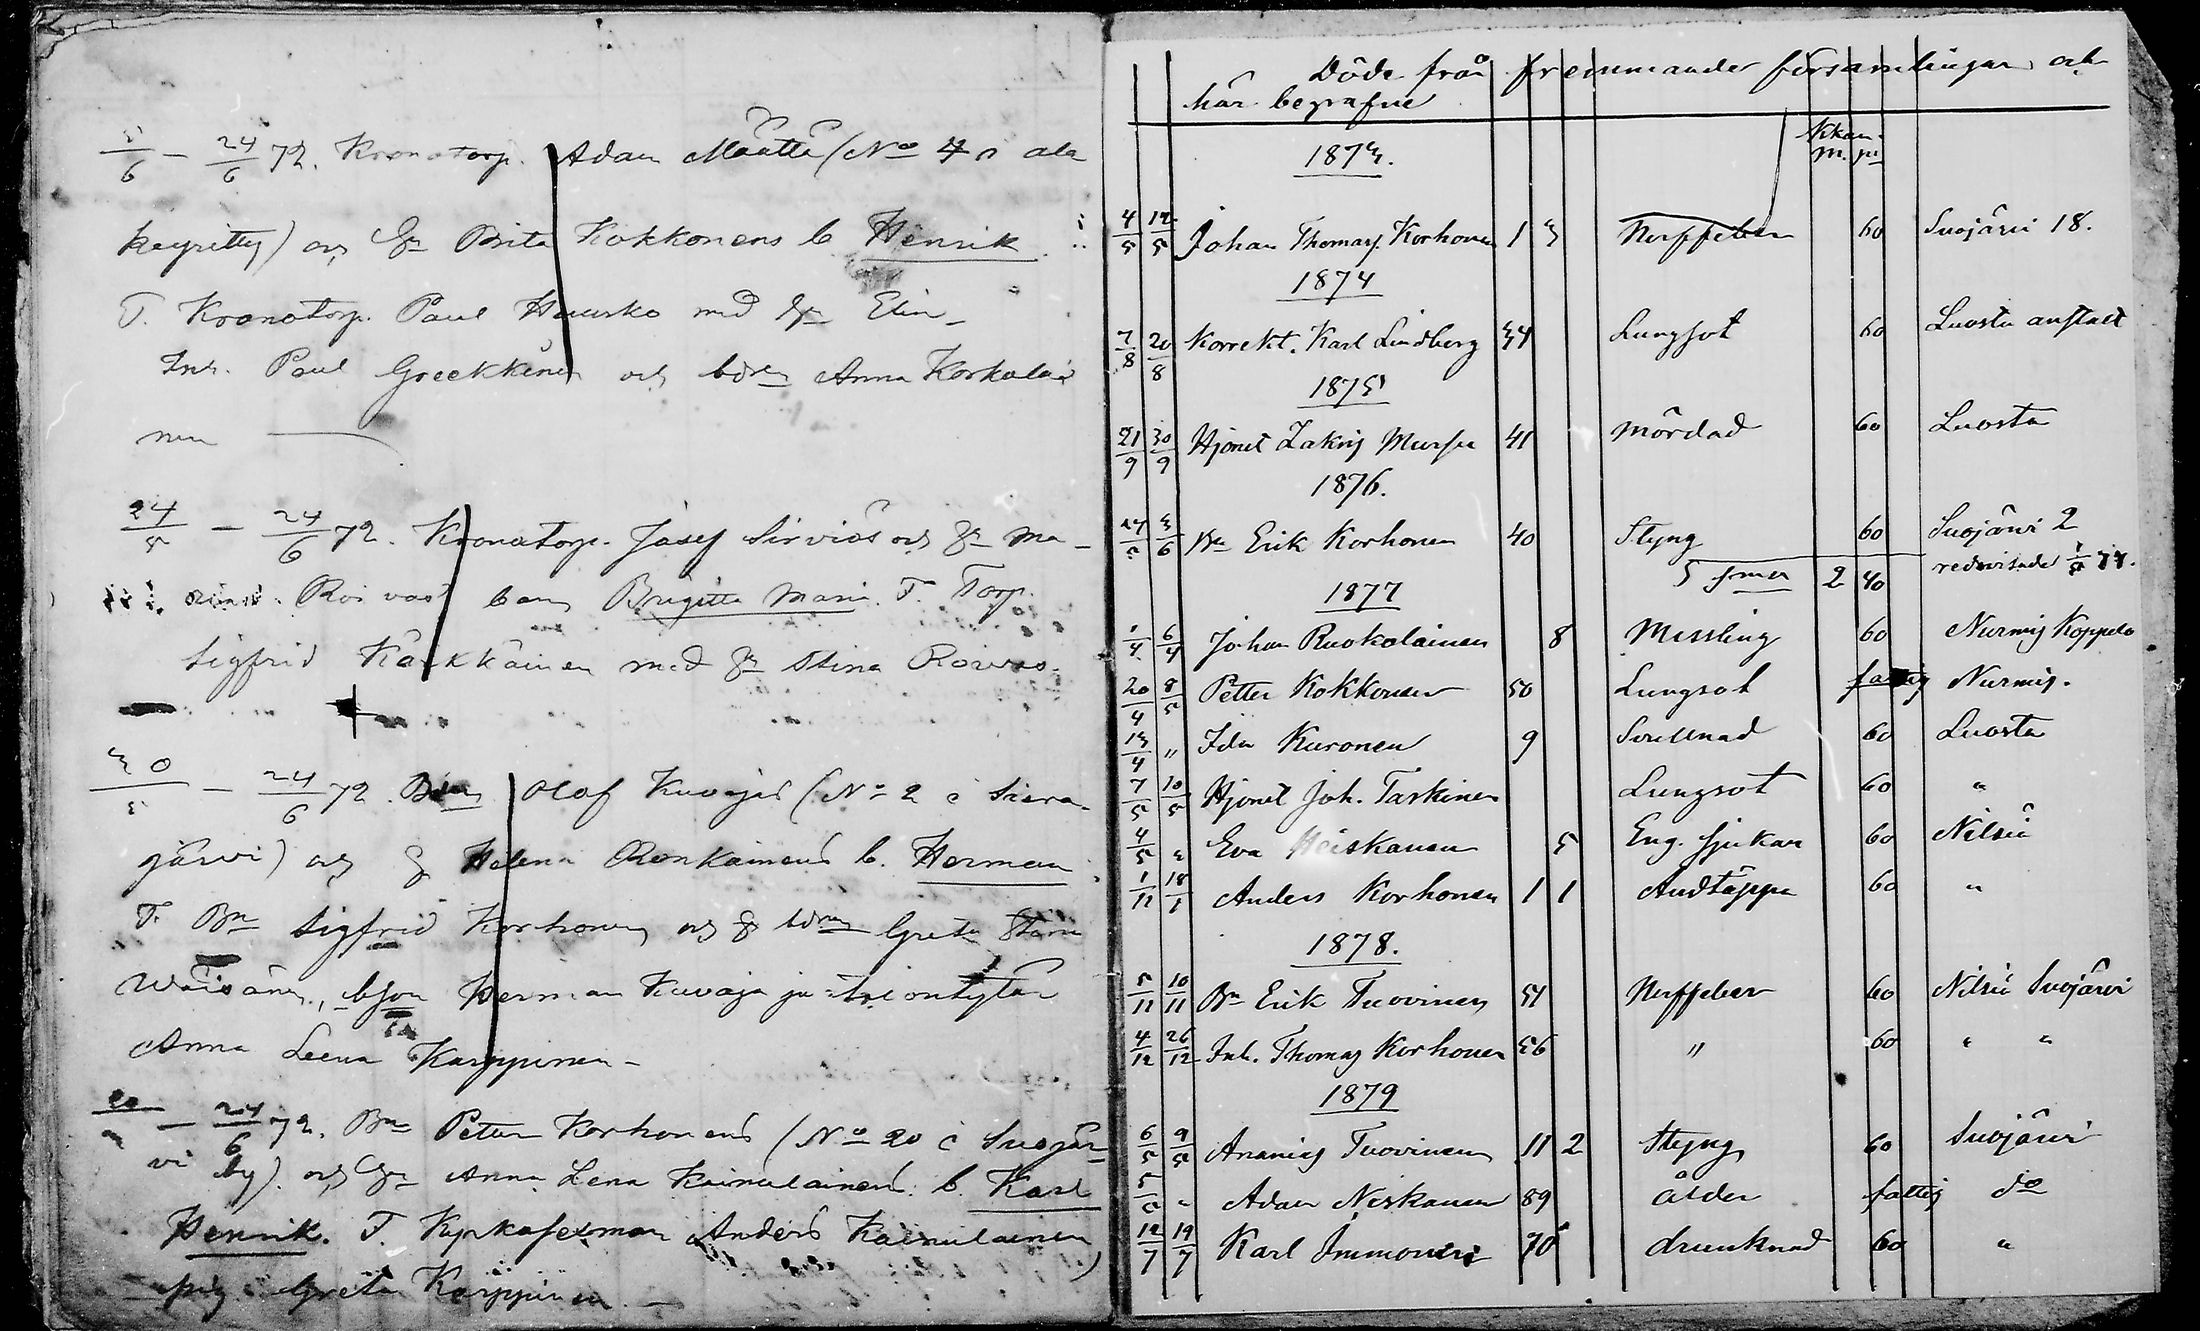 5/6 - 24/6 72. Kronotorp. Adam Määttä (No 4 i ala
keyritty) och hu Brita Kokkonens b. Henrik.
T. Kronotorp. Paul Huusko med hu Elin
Inh. Paul Greekkinen och bdr Anna Korkalai
nen
24/5 - 24/6 72. Kronotorp. Josef Sirviös och hu Ma-
Roivas barn Brigitta Maria. T. Torp.
Sigfrid Kärkkäinen med hu Stina Roivas.
30/5 - 24/6 72. Bn Olof Kuvajas (No 2 i Siera-
järvi) och h Helena Ronkainens b. Herman
T. Bn Sigfrid Korhonen och h Greta Stina
Wäisänen, bson Herman Kuvaja ja
Anna Leena Karppinen -
24/6 72. Bn Petter Korhonens (No 20 i Suojär-
vi by) och hu Anna Lena Kainulainens b. Karl
Henrik. T. Kyrkosexman Anders Kainulainen
pig Greta Karppinen. -
Döde från fremmande församlingar och
här begrafne
Kkan.
1873. M. pi
4/5 12/5 Johan Thomasf. Korhonen 1 3 Nerffeber 60 Suojärvi 18.
1874
7/8 20/8 Korrekt. Karl Lindberg 34 Lungsot 60 Luosta anstalt
1875
21/9 30/9 Hjonet Zakris Mursu 41 Mördad 60 Luosta
1876.
27/5 3/6 Bn Erik Korhonen 40 Styng 60 Suojärvi 2
Sma 2 40 redovisade 1/5 77.
1877
1/4 6/4 Johan Ruokolainen 8 Messling 60 Nurmis Koppelo
20/4 8/5 Petter Kokkonen 50 Lungsot fattig Nurmis.
13/4 " Ida Kuronen 9 Svullnad 60 Luosta
7/5 10/5 Hjonet Joh. Taskinen Lungsot 60 "
4/5 " Eva Heiskanen 5 Eng. sjukan 60 Nilsiä
1/11 18/1 Anders Korhonen 1 1 Andtäppa 60 "
1878.
5/11 10/11 Bn Erik Tuovinen 51 Nerffeber 60 Nilsiä Suojärvi
4/12 26/12 Inh. Thomas Korhonen 56 " 60 " "
1879
6/5 9/5 Ananias Tuovinen 11 2 Styng 60 Suojärvi
5/5 " Adam Niskanen 89 ålder fattig do
12/7 19/7 Karl Immonen 70 drunknad 60 "